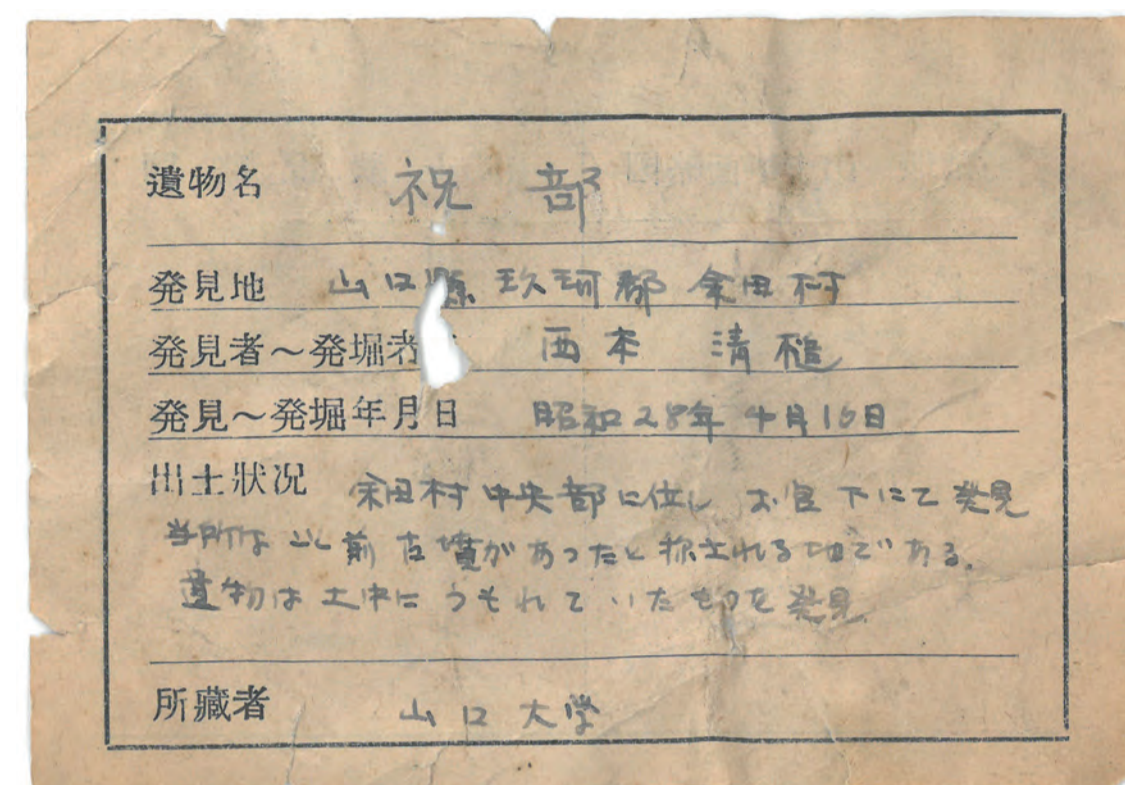 遺物名 祝部
発見地 山口縣玖珂郡余田村
発見者~発堀者 西本 清
発見~発堀年月日 昭和28年4月10日
出土狀況 余田村中央部に位し お宮下にて発見
当所は以前古墳があったと称される地である。
遺物は土中にうもれていたものを発見
所藏者 山口大学